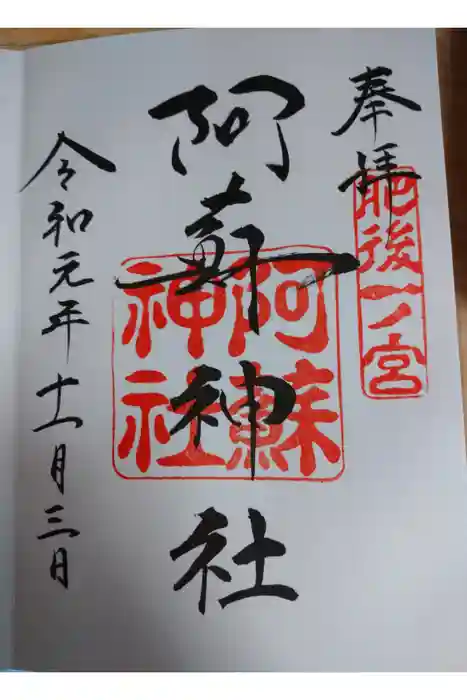 奉拝
肥後一ノ宮
阿蘇神社
阿蘇
神社
令和元年十一月三日